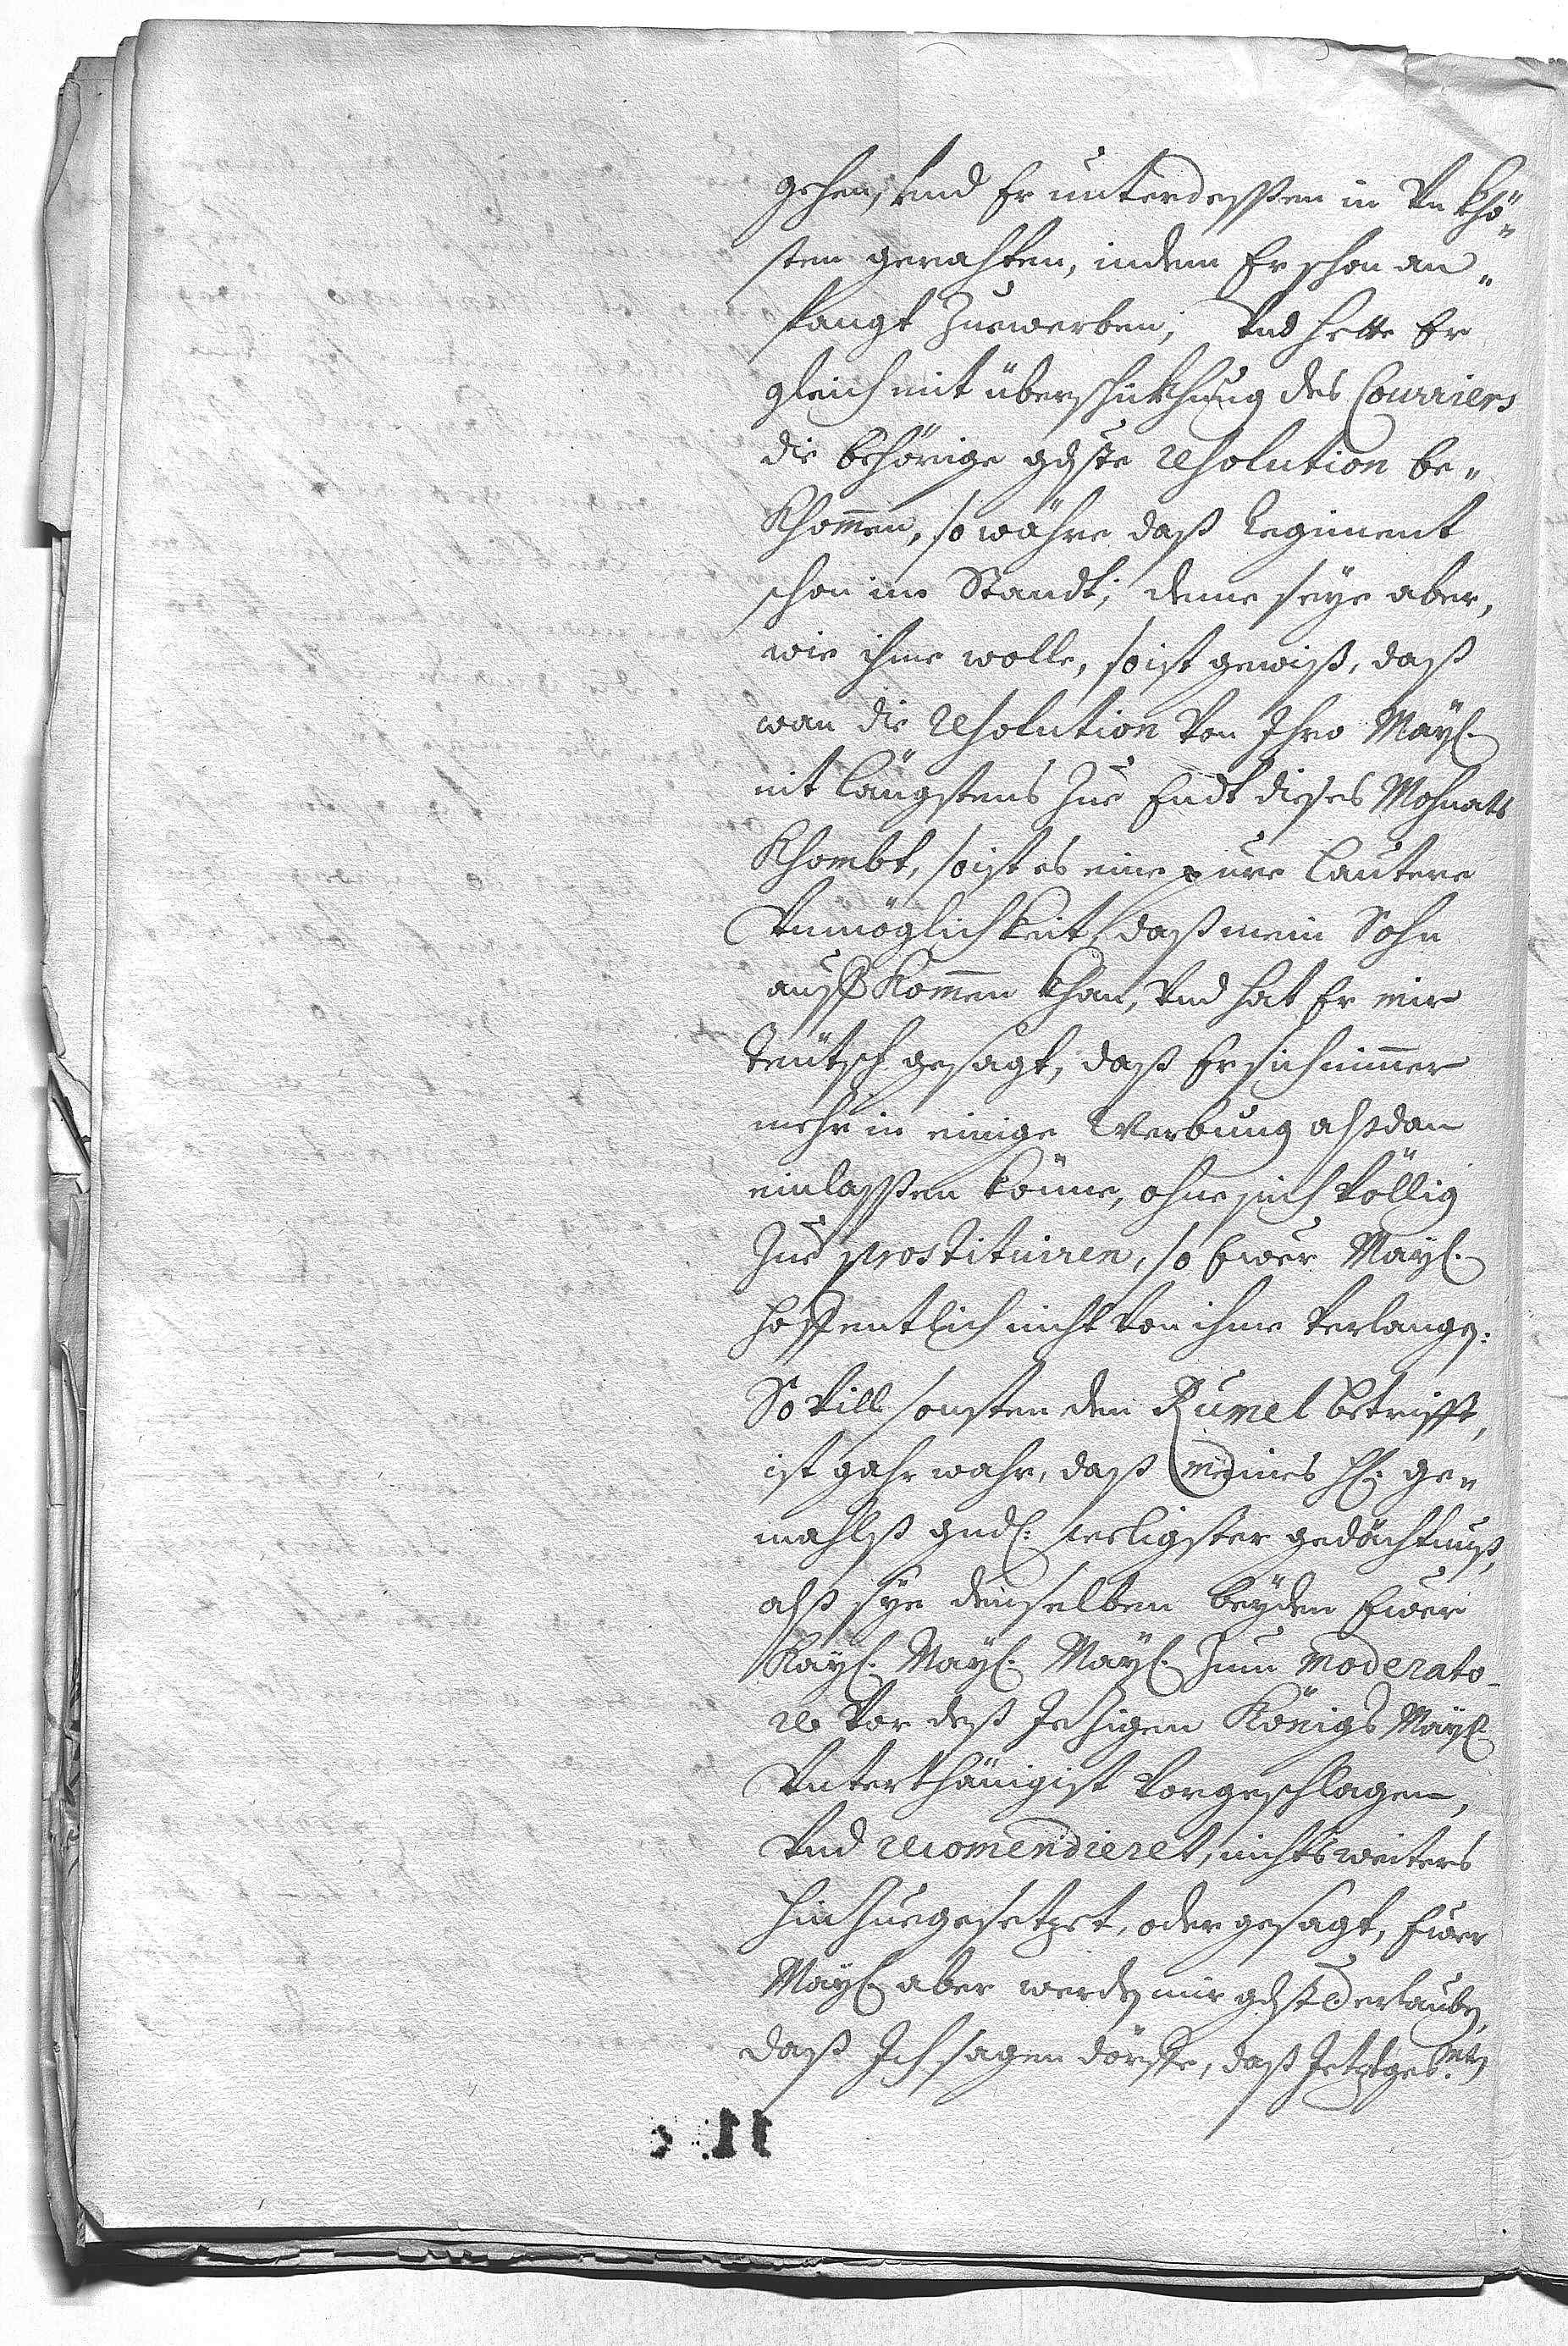 gehen, vnd Er unterdessßen in Vnkhö„
sten gerahten, indem Er schon an„
fangt Zuewerben; Vnd hette Er
gleich mit überschikhung des Courriers
die behörige gdste resolution be„
Khommen, so währe daß Regiment
schon im Standt; deme seye aber,
wie ihme wolle, so ist gewiß, daß
wan die resolution von Ihro Mayl.
nit längstens Zue Endt dieses Mohnats
Khombt, so ist es eine pure lautere
Vnmöglichkeit, daß mein Sohn
auffkommen khan, Vnd hat Er mir
teütsch gesagt, daß Er sich nimmer
mehr in einige Werbung alßdan
einlassßen könne, ohne sich völlig
Zue prostituiren, so Ewer Mayl.
hoffentlich nicht von ihme verlangen.
So vill sonsten den Rumel betrifft,
ist gahr wahr, daß meines H. ge„
mahlß gndl. seeligster gedächtnuß,
alß sye denselben beyden Ewer
Kayl. Mayl. Mayl. Zum moderato-
re vor deß Jezigen Königs Mayl.
Vnterthänigist vorgeschlagen,
Vnd recomendieret, nichts weiters
hinzuegesetzet, oder gesagt, Ewer
Mayl. aber werden mir gdst erlauben,
daß Ich sagen dörffe, daß Jetztged.ten
11